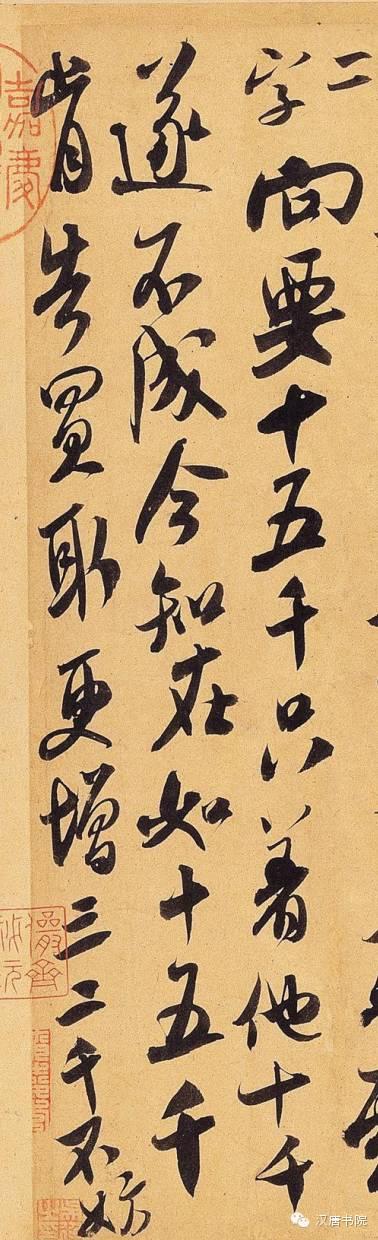 二
字向要十五千只着他十千
遂不成今知在如十五千
肯告買取更增三二千不妨
嘉慶
汉唐书院